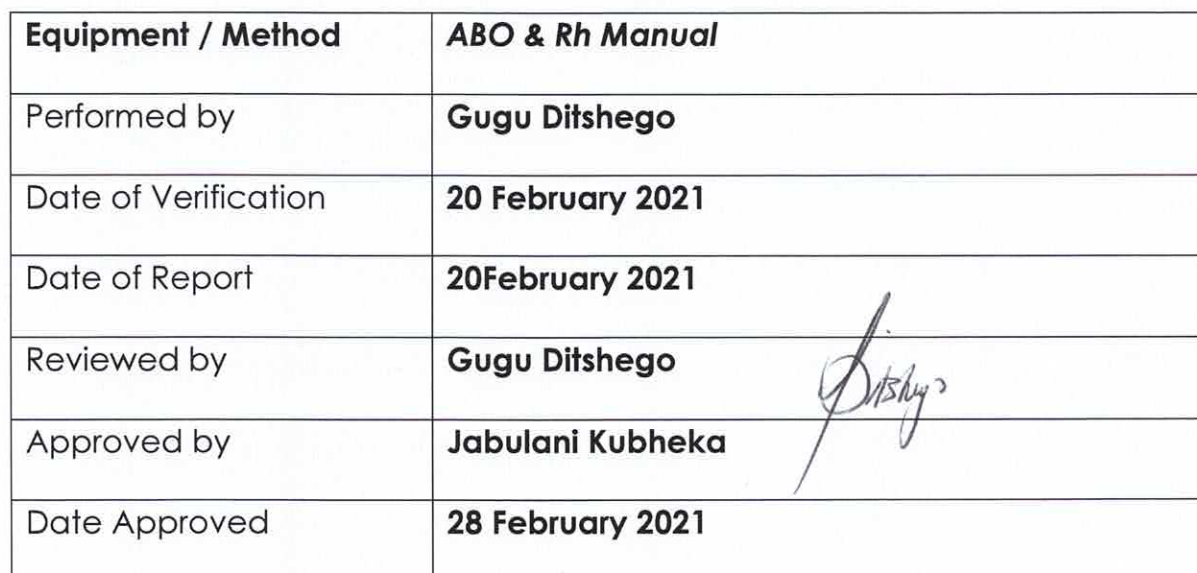 Equipment / Method ABO & Rh Manual
Performed by Gugu Ditshego
Date of Verification 20 February 2021
Date of Report 20February 2021
Reviewed by Gugu Ditshego
Ditshego
Approved by Jabulani Kubheka
Date Approved 28 February 2021